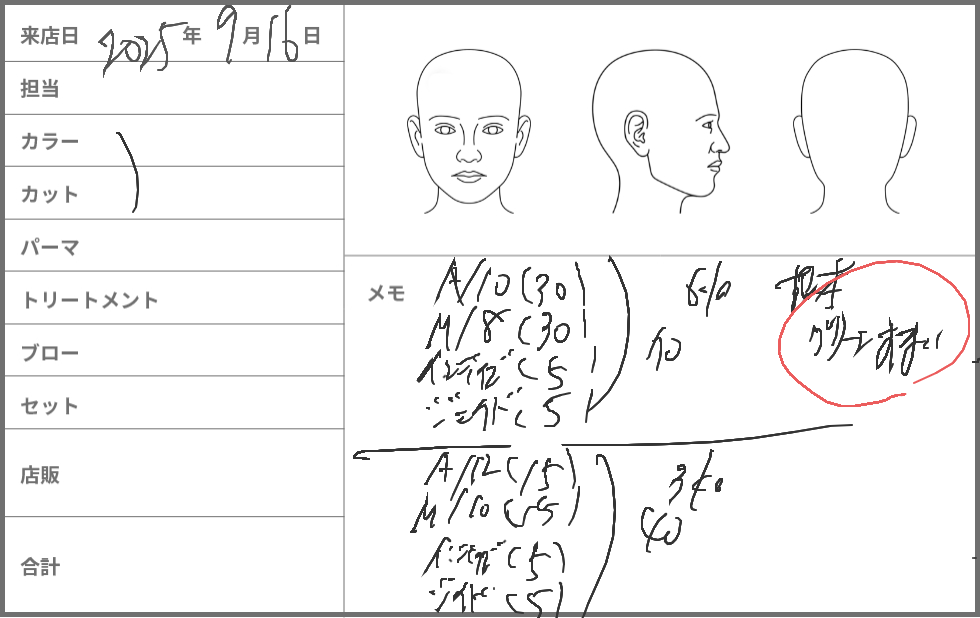 来店日 2025年 9月 16日
担当
カラー
カット
パーマ
トリートメント
ブロー
セット
店販
合計
メモ
A/10 (30)
M/8 (30)
インディゴ (5)
ジェイド (5)
6%
10
グリーン
A/12 (15)
M/10 (55)
インディゴ (5)
ジェイド (5)
3%
40